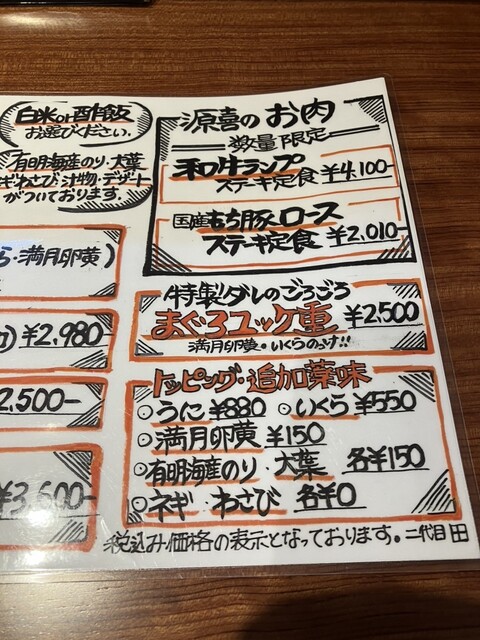 白米or酢飯
お選びください。
有明海産のり・大葉
ネギわさび・汁物・デザート
がついております。
ら・満月卵黄)
¥2,980
2,500-
¥3,600-
源喜の お肉
数量限定
和牛ランプ
ステーキ定食 ¥4,100-
国産もち豚ロース
ステーキ定食 ¥2,010-
特製ダレのごろごろ
まぐろユッケ重 ¥2,500
満月卵黄・いくらのっけ!!
トッピング・追加薬味
○うに ¥880 ○いくら ¥550
○満月卵黄 ¥150
○有明海産のり・大葉 各¥150
○ネギ・わさび 各¥0
税込み価格の表示となっております。二代目 田